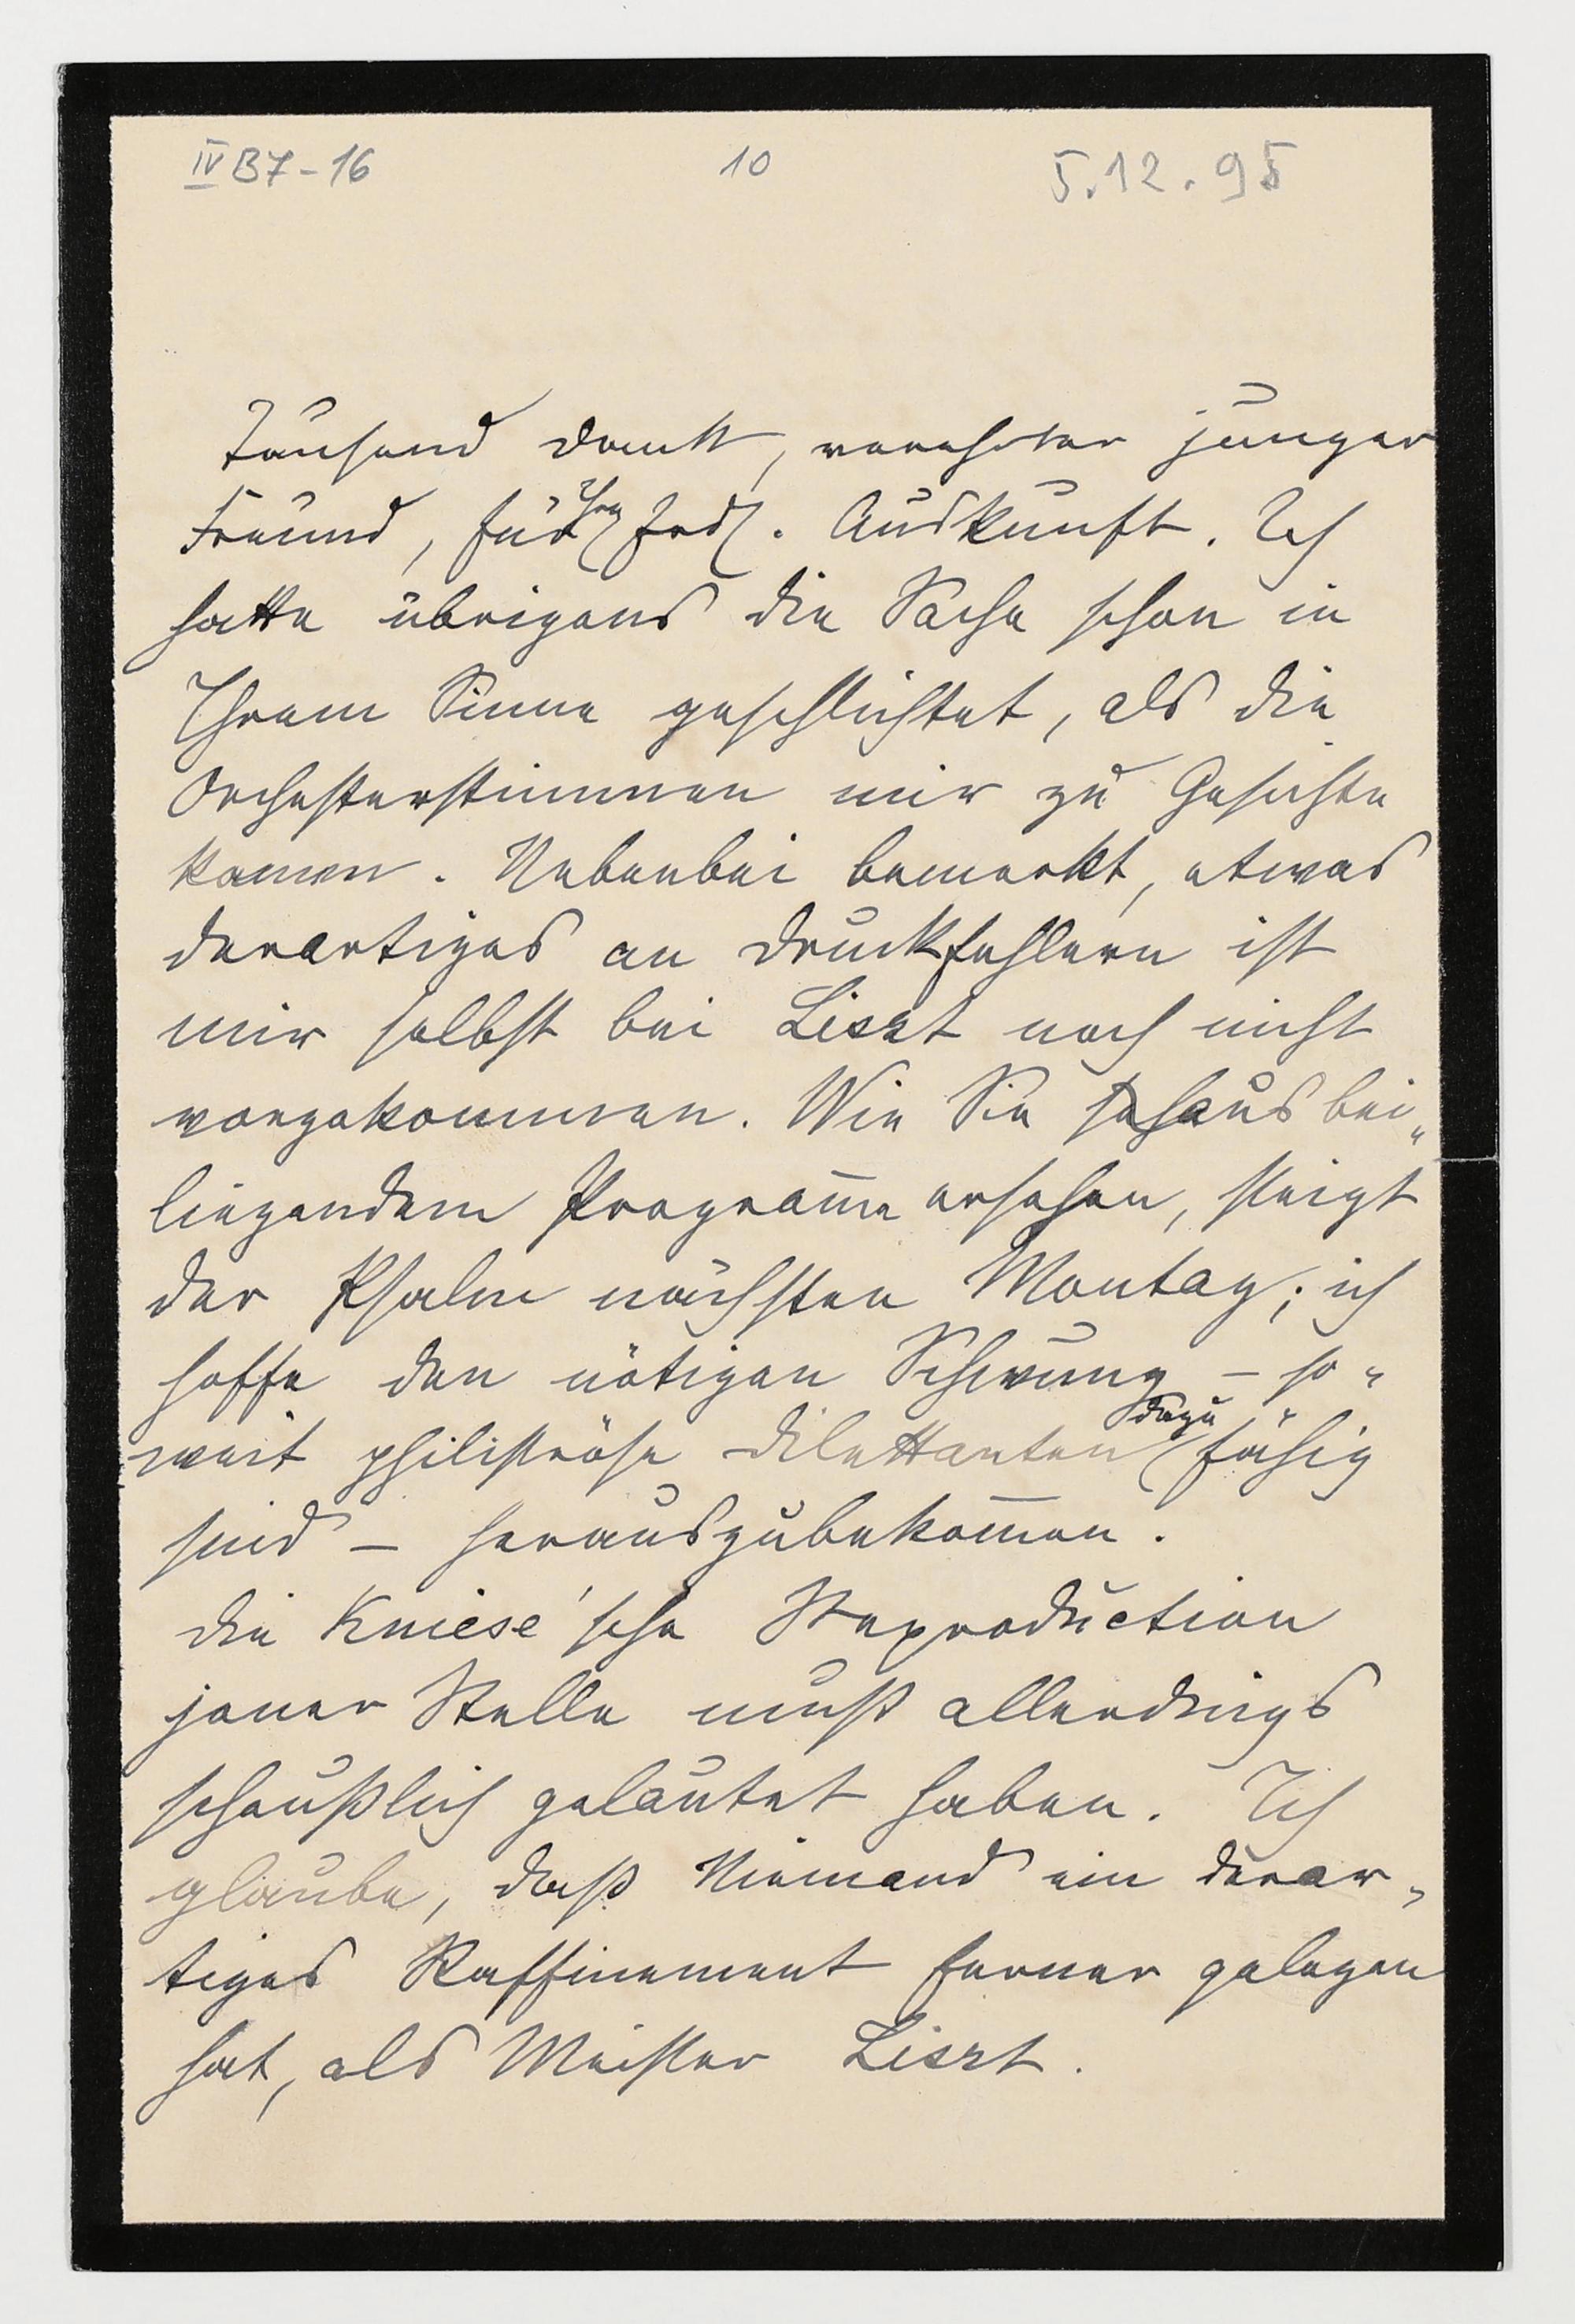 IV B7-16 10 5.12.95
Tausend Dank, verehrter junger
Freund, für Ihre frdl. Auskunft. Ich
hatte übrigens die Sache schon in
Ihrem Sinne geschlichtet, als die
Orchesterstimmen mir zu Gesichte
kamen. Nebenbei bemerkt, etwas
derartiges an Druckfehlern ist
mir selbst bei Liszt noch nicht
vorgekommen. Wie Sie aus bei„
liegendem Programm̅e ersehen, steigt
der Psalm nächsten Montag; ich
hoffe den nötigen Schwung – so„
weit philiströse Dilettanten dazu fähig
sind – herauszubekom̅en.
Die Kniese'sche Reproduction
jener Stelle muß allerdings
scheußlich geläutet haben. Ich
glaube, daß Niemand ein derar„
tiges Raffinement ferner gelegen
hat, als Meister Liszt.